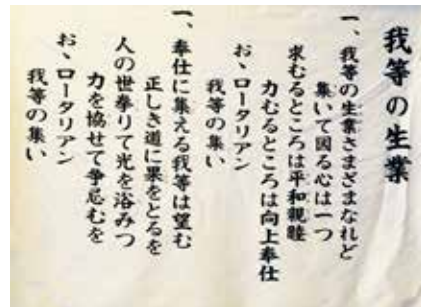 我等の生業
一、我等の生業さまざまなれど
集いて図る心は一つ
求むるところは平和親睦
力むるところは向上奉仕
お、ロータリアン
我等の集い
一、奉仕に集える我等は望む
正しき道に果をとるを
人の世挙りて光を浴みつ
力を協せて争忌むを
お、ロータリアン
我等の集い